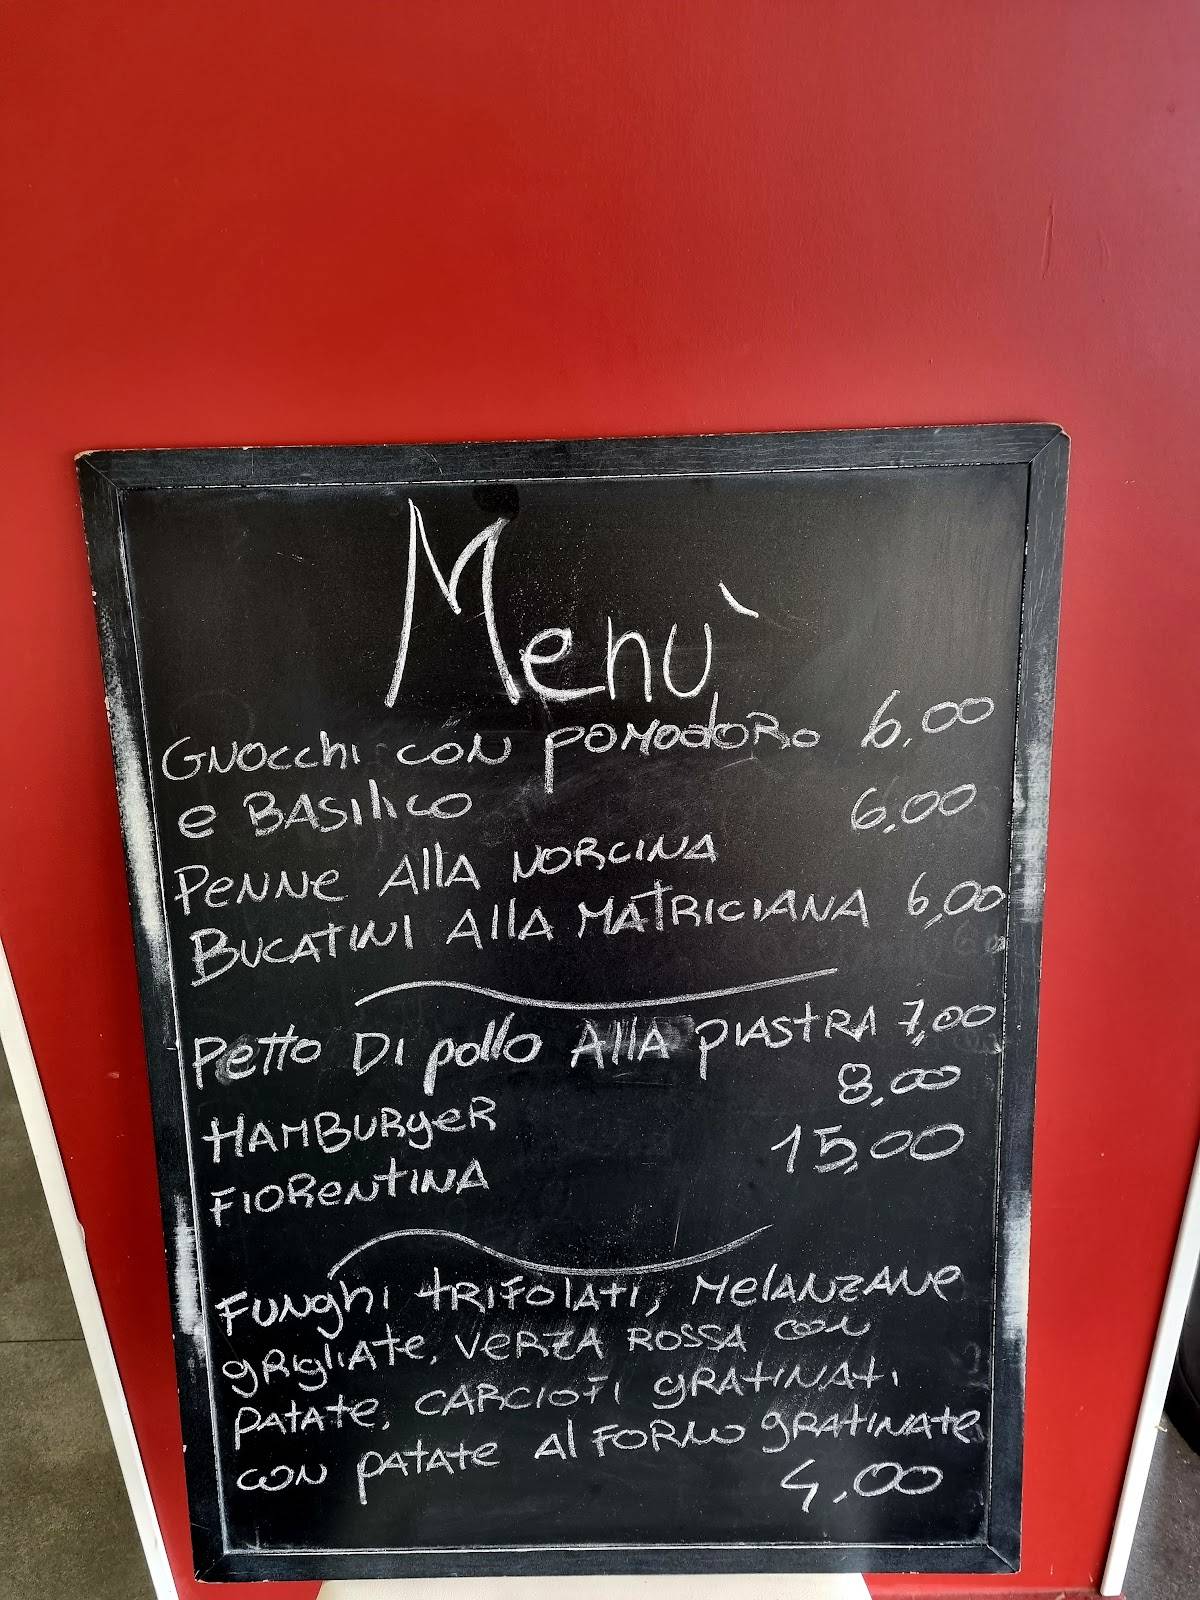 Menù
Gnocchi con pomodoro 6,00
e Basilico
Penne alla norcina 6,00
Bucatini alla matriciana 6,00
Petto di pollo alla piastra 7,00
Hamburger 8,00
Fiorentina 15,00
Funghi trifolati, melanzane
grigliate, verza rossa con
patate, carciofi gratinati
con patate al forno gratinate
4,00